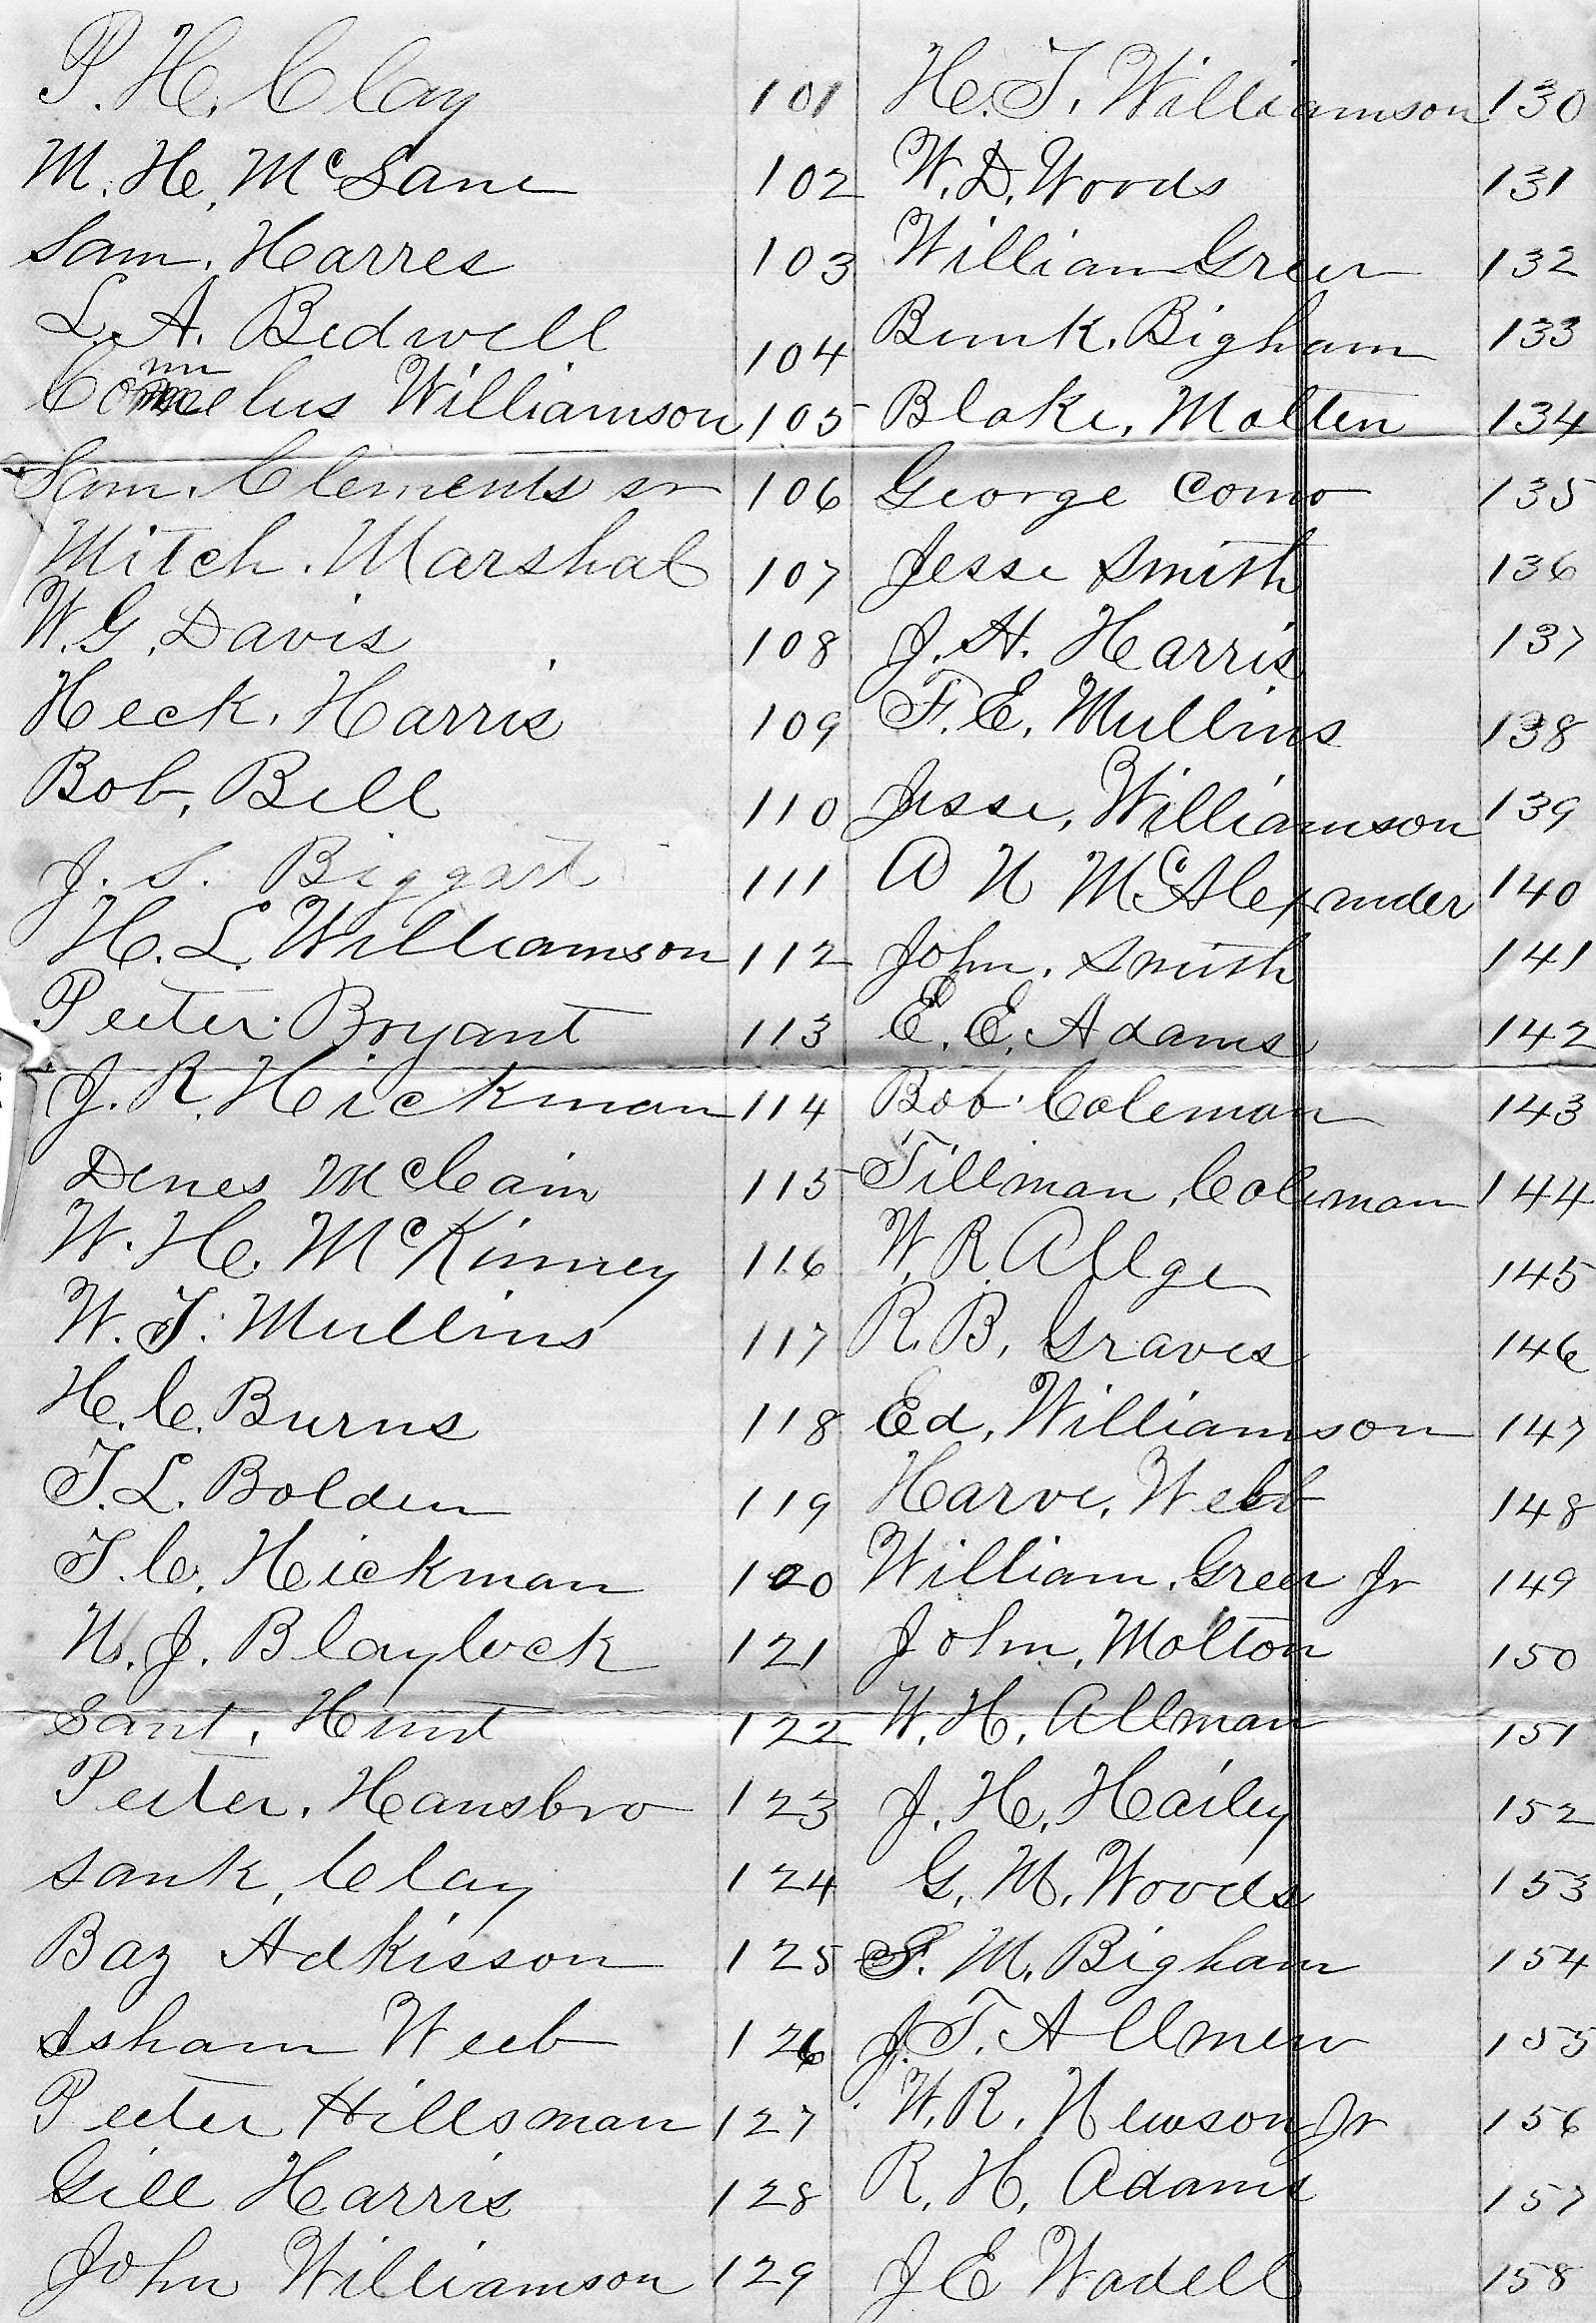 P. H. Clay 101
M. H. McLane 102
Sam. Harres 103
L. A. Bedwell 104
Cornelus Williamson 105
Sam. Clements sr 106
Mitch. Marshal 107
W. G. Davis 108
Heck. Harris 109
Bob, Bell 110
J. S. Biggart 111
H. L. Williamson 112
Peeter. Bryant 113
J. R. Hickman 114
Denes McCain 115
W. H. McKinney 116
W. T. Mullins 117
H. C. Burns 118
T. L. Bolden 119
T. C. Hickman 120
W. J. Blaylock 121
Sant, Hunt 122
Peeter, Hansbro 123
Sank, Clay 124
Baz Adkisson 125
Isham Weeb 126
Peeter Hillsman 127
Gill Harris 128
John Williamson 129
H. T. Williamson 130
W. D. Woods 131
William Greer 132
Bunk. Bigham 133
Blake, Molten 134
George Como 135
Jesse Smith 136
J. H. Harris 137
F. E. Mullins 138
Jesse, Williamson 139
A N McAlexander 140
John. Smith 141
E. E. Adams 142
Bob. Coleman 143
Tillman, Coleman 144
W. R. Allge 145
R. B. Graves 146
Ed, Williamson 147
Harve, Webb 148
William, Greer Jr 149
John, Molton 150
W. H. Allman 151
J. H. Hailey 152
G. M. Woods 153
S. M. Bigham 154
J. T. Allmen 155
W. R. Newson Jr 156
R. H. Adams 157
J E Wadell 158